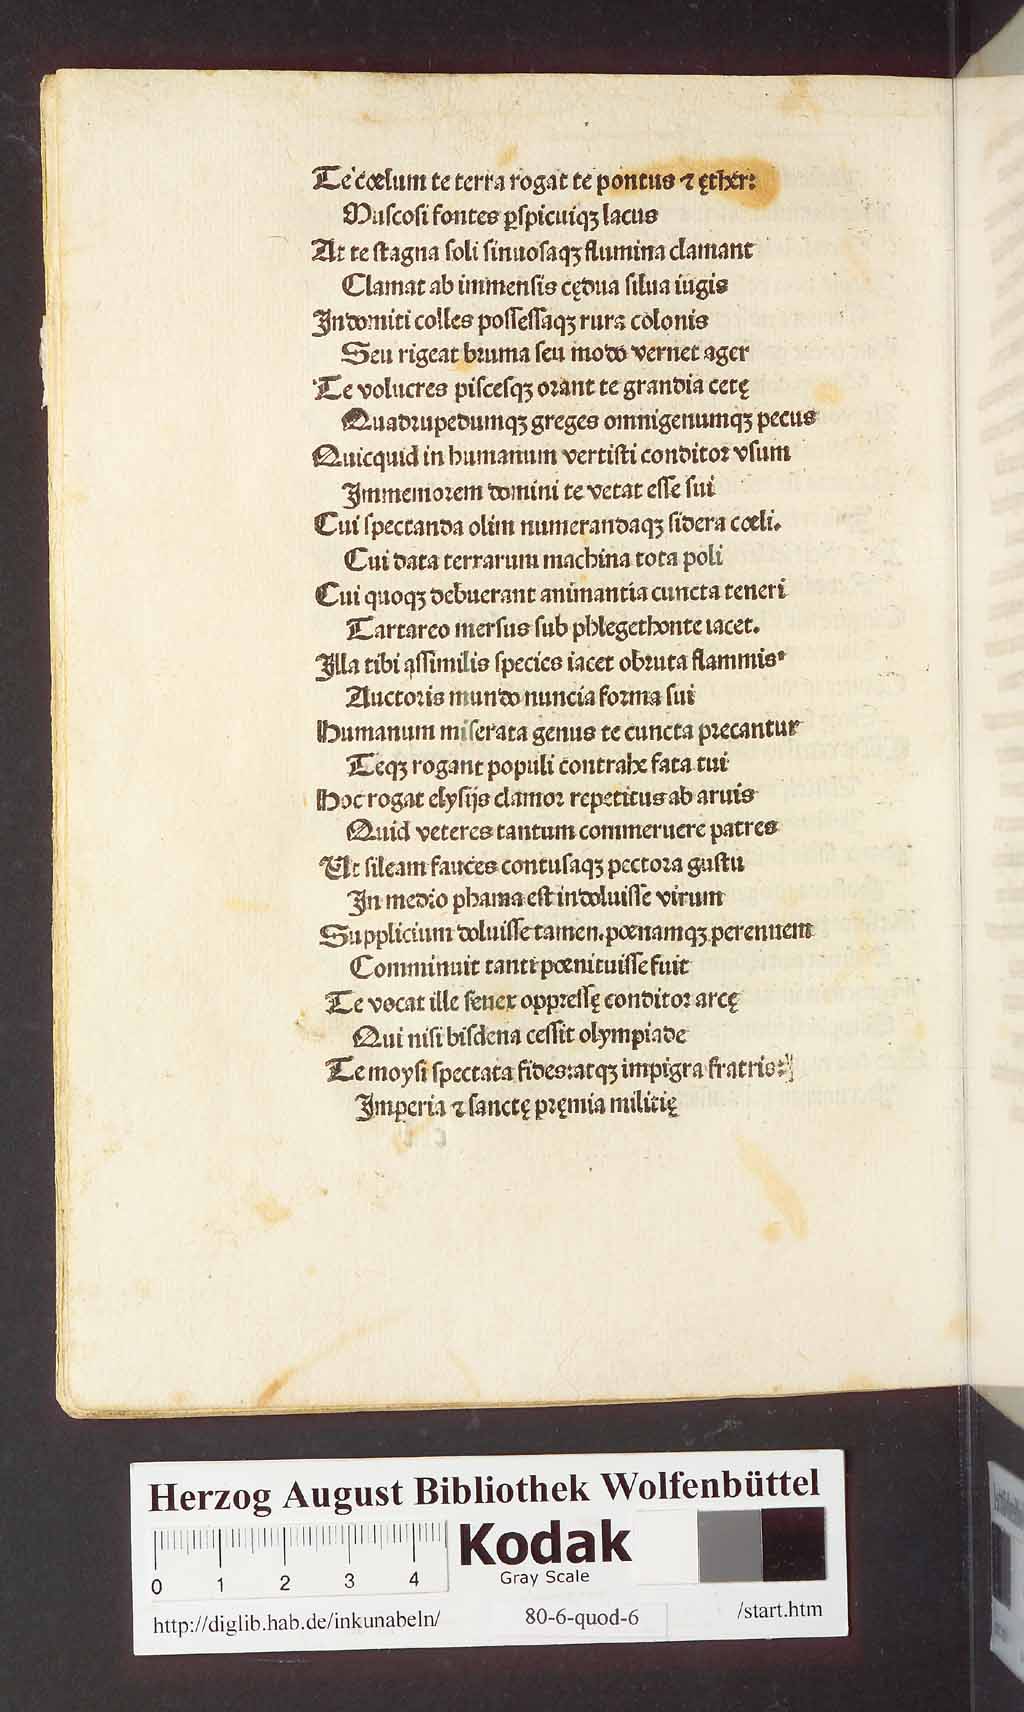 Te cœlum te terra rogat te pontus ⁊ ęther:
Muscosi fontes ꝑspicuiqꝫ lacus
At te stagna soli sinuosaqꝫ flumina clamant
Clamat ab immensis cędua silua iugis
Indomiti colles possessaqꝫ rura colonis
Seu rigeat bruma seu modo vernet ager
Te volucres piscesqꝫ orant te grandia cetę
Quadrupedumqꝫ greges omnigenumqꝫ pecus
Quicquid in humanum vertisti conditor vsum
Immemorem domini te vetat esse sui
Cui spectanda olim numerandaqꝫ sidera cœli.
Cui data terrarum machina tota poli
Cui quoqꝫ debuerant animantia cuncta teneri
Tartareo mersus sub phlegethonte iacet.
Illa tibi assimilis species iacet obruta flammis
Auctoris mundo nuncia forma sui
Humanum miserata genus te cuncta precantur
Teqꝫ rogant populi contrahe fata tui
Hoc rogat elysijs clamor repetitus ab aruis
Quid veteres tantum commeruere patres
Ut sileam fauces contusaqꝫ pectora gustu
In medio phama est indoluisse virum
Supplicium doluisse tamen. pœnamqꝫ perennem
Comminuit tanti pœnituisse fuit
Te vocat ille senex oppressę conditor arcę
Qui nisi bisdena cessit olympiade
Te moysi spectata fides: atqꝫ impigra fratris:
Imperia ⁊ sanctę pręmia militię
Herzog August Bibliothek Wolfenbüttel
Kodak
Gray Scale
0 1 2 3 4
http://diglib.hab.de/inkunabeln/ 80-6-quod-6 /start.htm